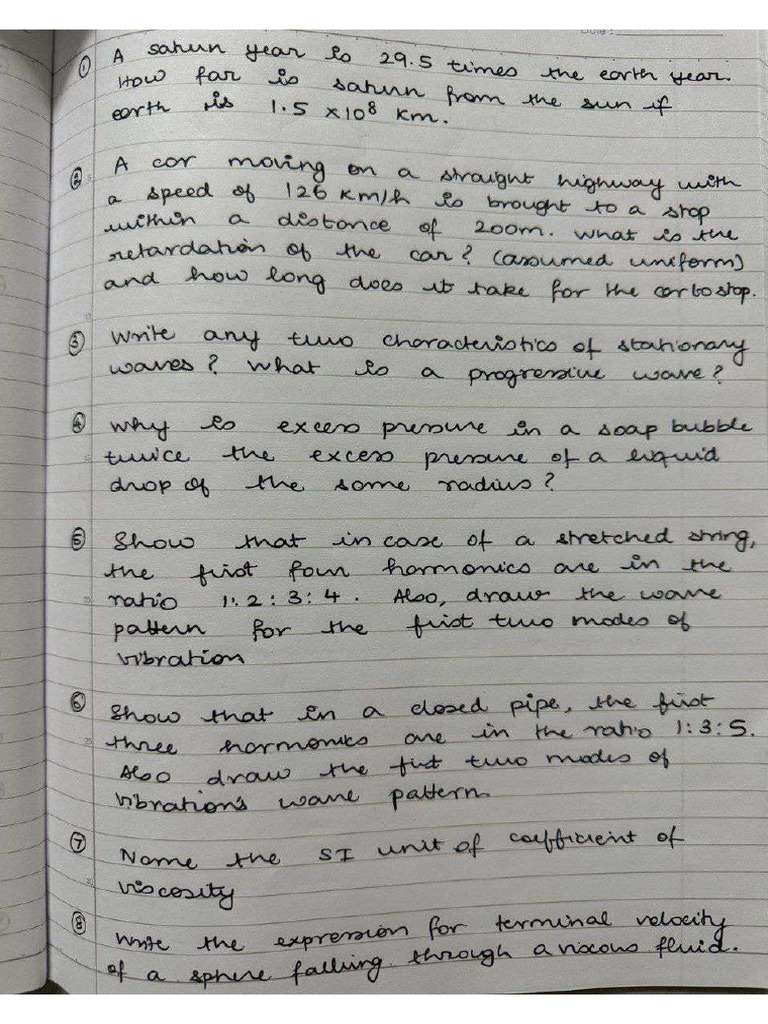 Date :
① A saturn year is 29.5 times the earth year.
How far is saturn from the sun if
earth is 1.5 ×10⁸ km.
② A car moving on a straight highway with
a speed of 126 km/h is brought to a stop
within a distance of 200m. What is the
retardation of the car? (assumed uniform)
and how long does it take for the car to stop.
③ Write any two characteristics of stationary
waves? What is a progressive wave?
④ Why is excess pressure in a soap bubble
twice the excess pressure of a liquid
drop of the same radius?
⑤ Show that in case of a stretched string,
the first four harmonics are in the
ratio 1:2:3:4. Also, draw the wave
pattern for the first two modes of
vibration
⑥ Show that in a closed pipe, the first
three harmonics are in the ratio 1:3:5.
Also draw the first two modes of
vibration's wave pattern.
⑦ Name the SI unit of coefficient of
viscosity
⑧ Write the expression for terminal velocity
of a sphere falling through a viscous fluid.